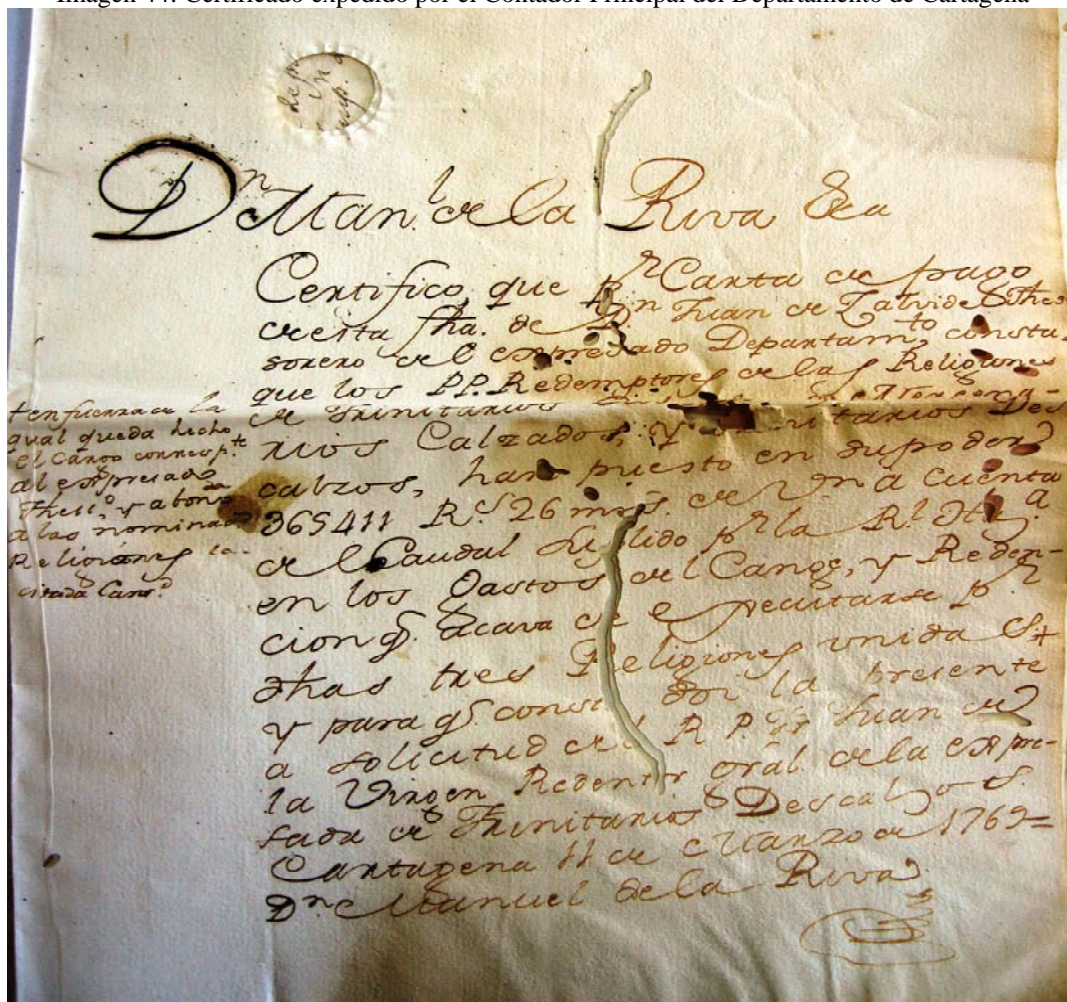 Imagen 44. Certificado expedido por el Contador Principal del Departamento de Cartagena
Dn. Man.l de la Riva &a
Certifico, que pr. Carta de pago
de esta fha. de Dn Juan de Thes
sorero del expresado Departam.to, consta
que los P.P. Redemptores de las Religiones
de Trinitarios
rios Calzados, y Trinitarios Des
calzos, han puesto en su poder
365411 Rs. 26 mrs. de Vn a cuenta
del Caudal suplido pr. la Rl. Hz.a
en los Gastos del Cange, y Reden-
cion q.e acava de executarse p.r
dhas tres Religiones unidas
y para q.e conste doi la presente
a solicitud del R. P. Fr Juan de
la Virgen Redentor Gral. de la expre-
sada de Trinitarios Descalzos
Cartagena 11 de Marzo de 1769=
Dn. Manuel de la Riva
+ en fuerza de la
qual queda hecho
el cargo correspte
al expresado
Theso, y abona
a las nominadas
Religiones la
citada Cantd.